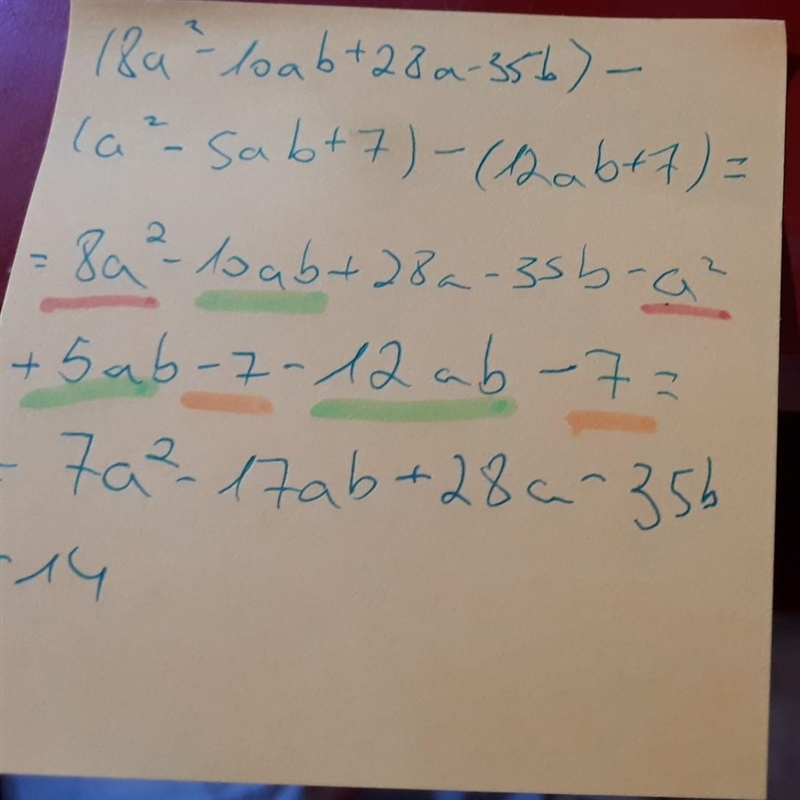 (8a² - 10ab + 28a - 35b) -
(a² - 5ab + 7) - (12ab + 7) =
= 8a² - 10ab + 28a - 35b - a²
+ 5ab - 7 - 12ab - 7 =
= 7a² - 17ab + 28a - 35b
- 14